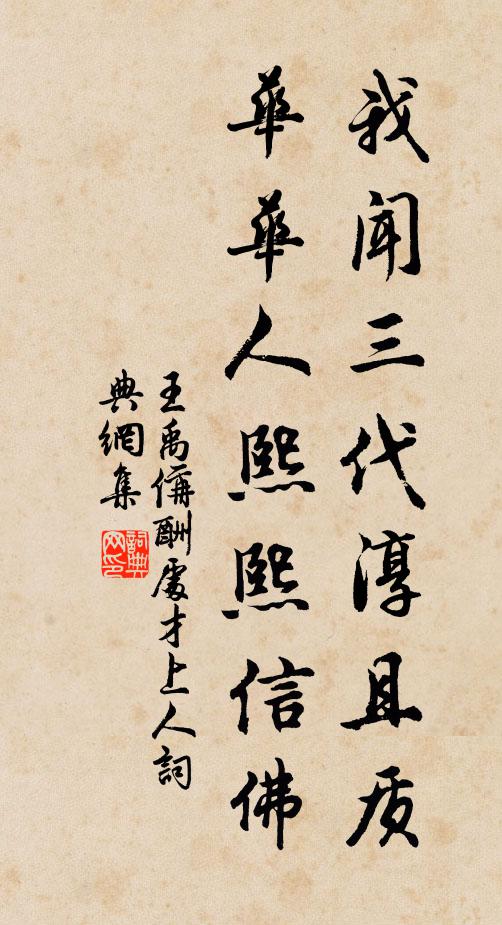 我闻三代淳且质
华华人熙熙信佛
王禹偁酬处才上人词
典網集
詞典网印